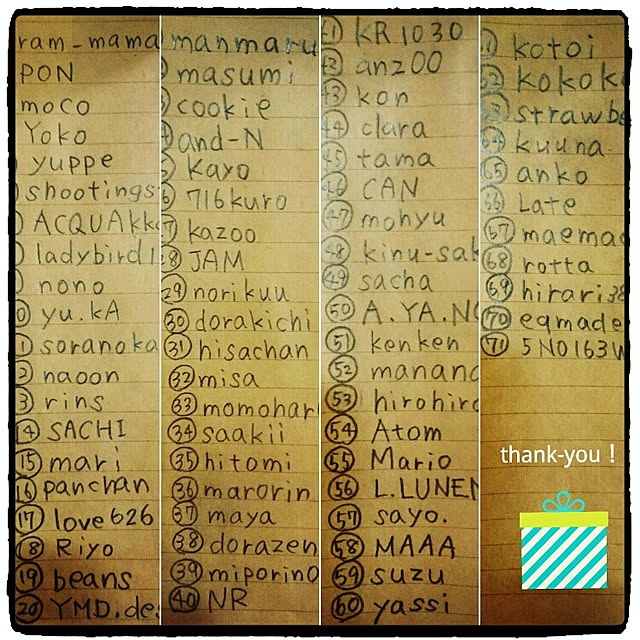 ram-mama
PON
moco
Yoko
yuppe
shootings
ACQUAkk
ladybird1
nono
0 yu.kA
1 soranoka
2 naoon
3 rins
14 SACHI
15 mari
16 panchan
17 love626
18 Riyo
19 beans
20 YMD.de
manmaru
masumi
3 cookie
4 and-N
5 Kayo
6 716kuro
7 kazoo
28 JAM
29 norikuu
30 dorakichi
31 hisachan
32 misa
33 momohar
34 saakii
35 hitomi
36 marorin
37 maya
38 dorazen
39 miporino
40 NR
41 KR1030
42 anz00
43 kon
44 clara
45 tama
46 CAN
47 mohyu
48 kinu-sak
49 sacha
50 A.YA.NO
51 kenken
52 manano
53 hirohiro
54 Atom
55 Mario
56 L.LUNEN
57 sayo.
58 MAAA
59 suzu
60 yassi
61 kotoi
62 kokoko
63 strawbe
64 kuuna
65 anko
66 Late
67 maemae
68 rotta
69 hirari38
70 eqmade
71 5N0163W
thank-you !